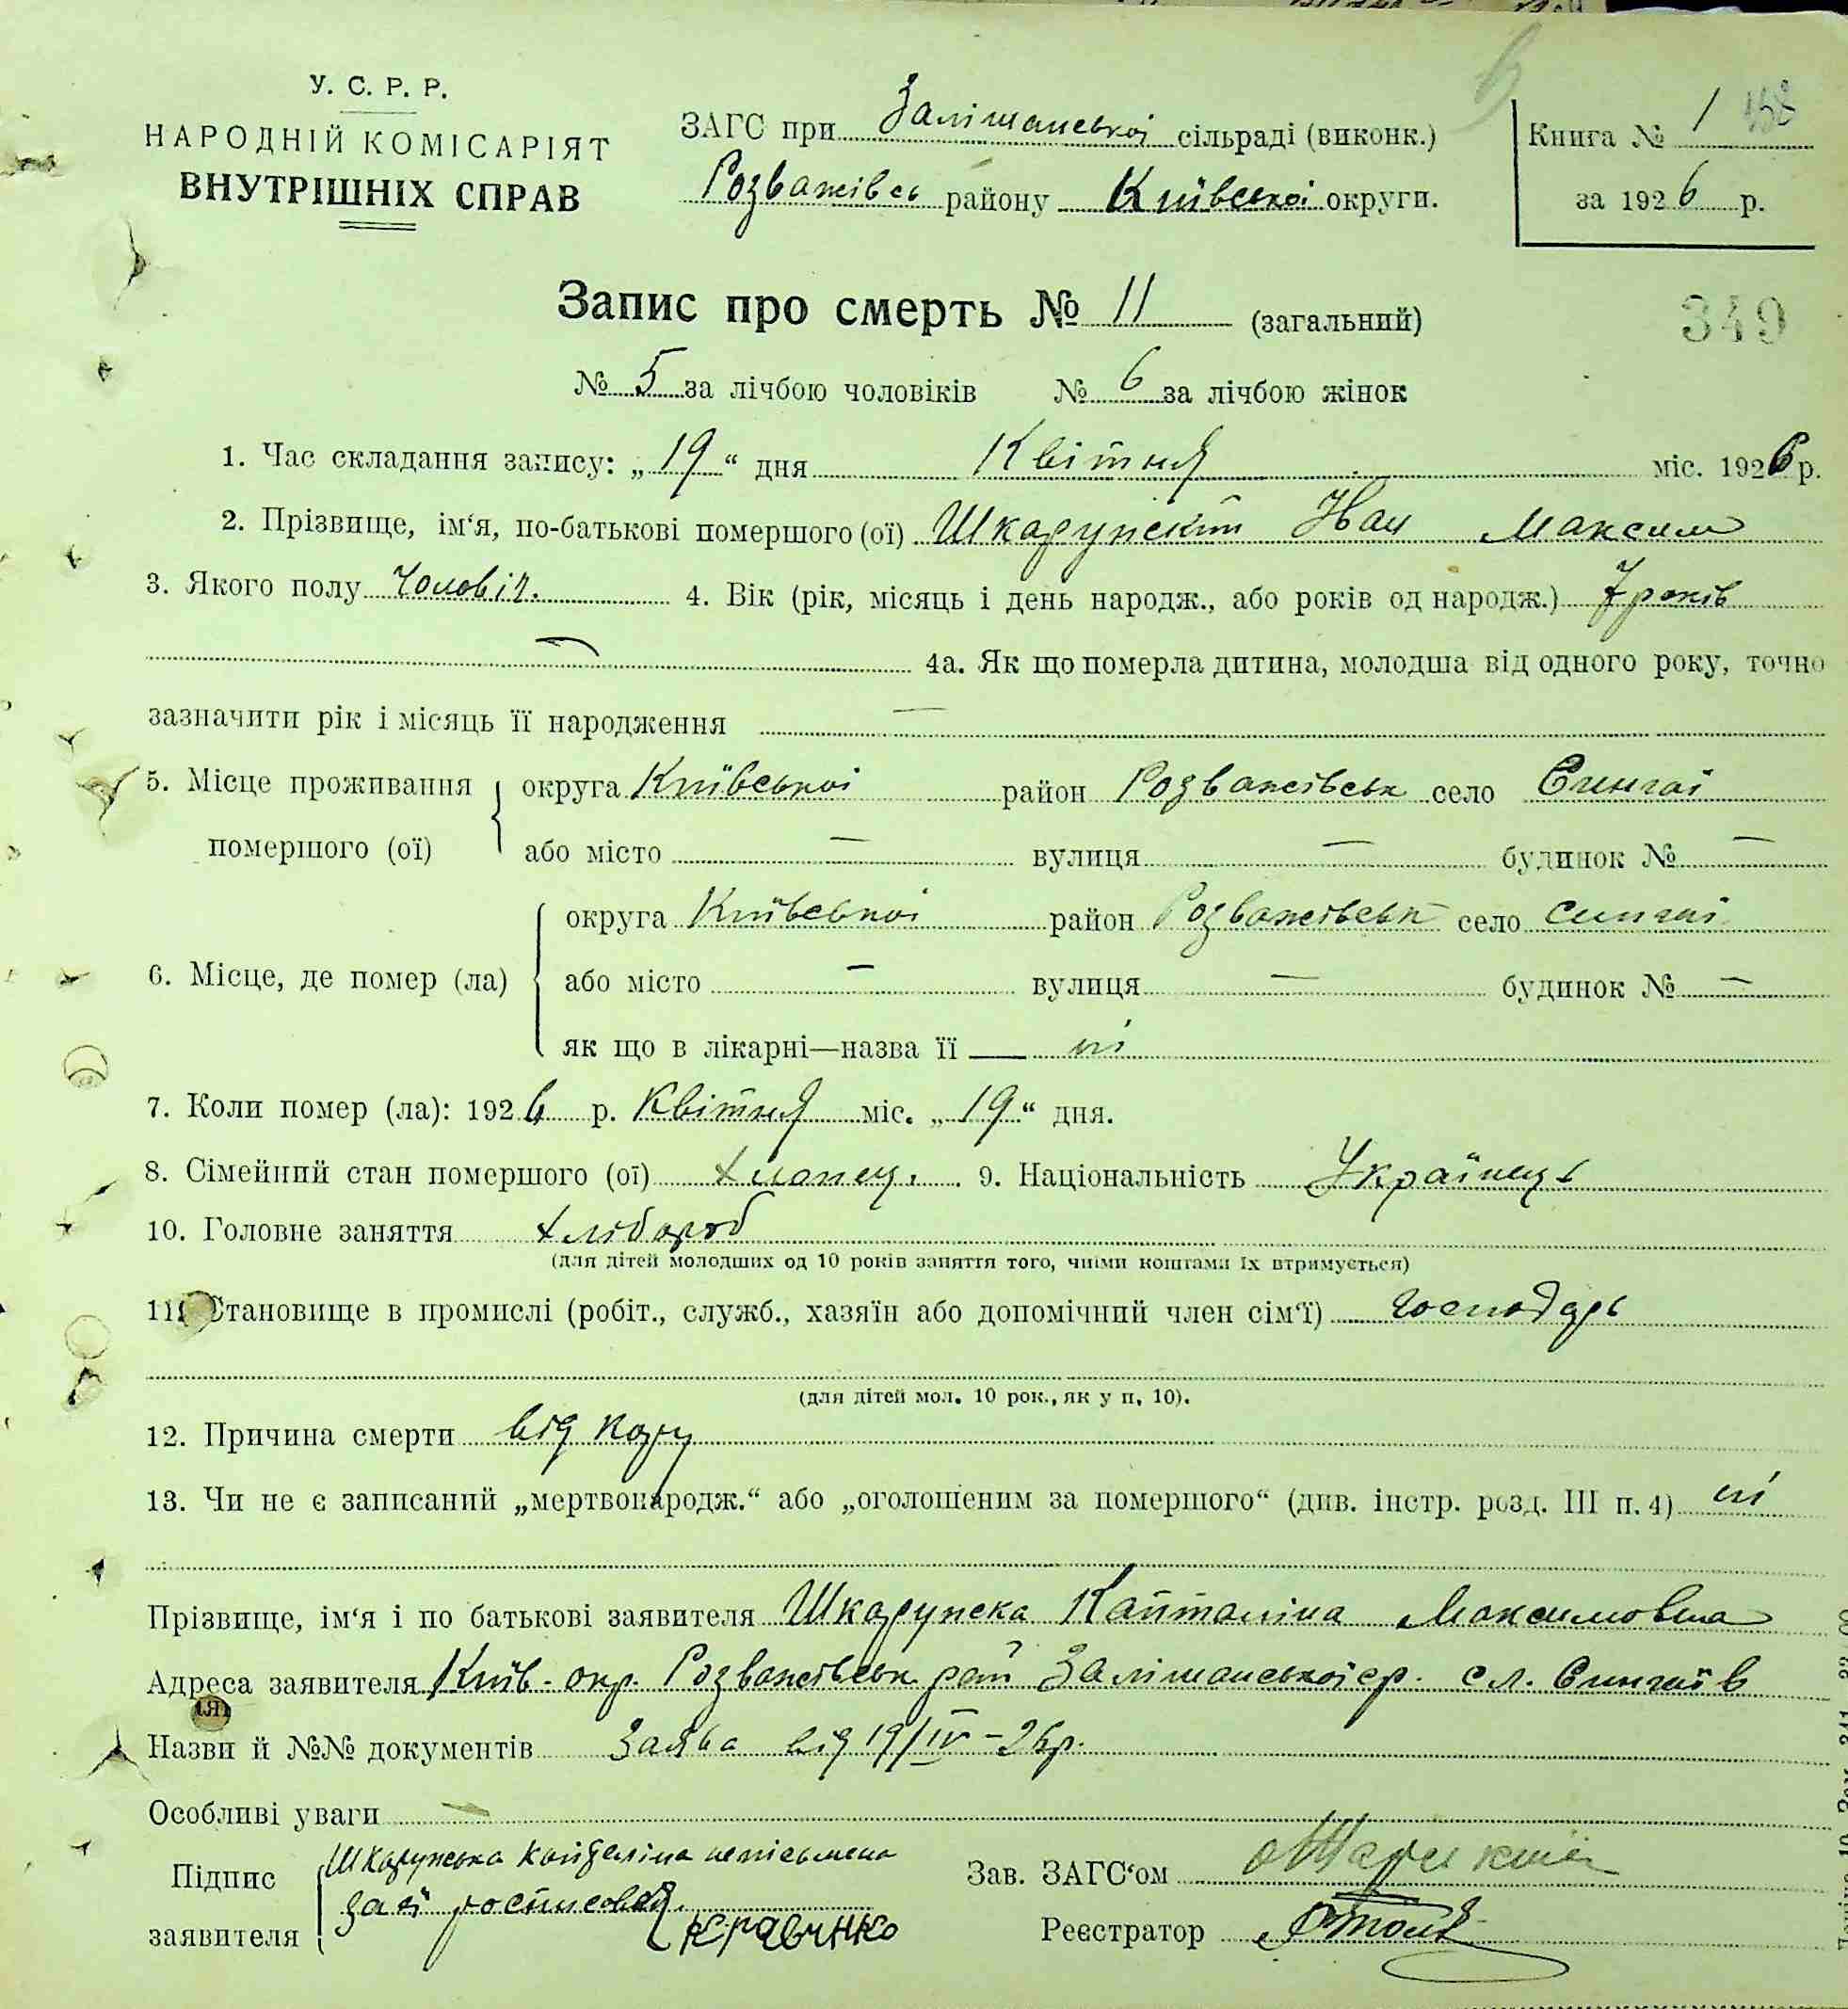 У. С. Р. Р.
НАРОДНІЙ КОМІСАРІЯТ
ВНУТРІШНІХ СПРАВ
ЗАГС при Залішанської сільраді (виконк.)
Розважівсь району Київської округи.
Книга № 1 158
за 1926 р.
Запис про смерть № 11 (загальний)
349
№ 5 за лічбою чоловіків № 6 за лічбою жінок
1. Час складання запису: „19“ дня Квітня міс. 1926 р.
2. Прізвище, ім‘я, по-батькові помершого (ої) Шкарупский Максим
3. Якого полу Чоловіч. 4. Вік (рік, місяць і день народж., або років од народж.) 7 років
4а. Як що померла дитина, молодша від одного року, точно
зазначити рік і місяць її народження —
5. Місце проживання помершого (ої)
округа Київської район Розважівськ село Сингаї
або місто — вулиця — будинок № —
6. Місце, де помер (ла)
округа Київської район Розважівськ село Сингаї
або місто — вулиця — будинок № —
як що в лікарні—назва її — ні
7. Коли помер (ла): 1926 р. Квітня міс. „19“ дня.
8. Сімейний стан помершого (ої) хлопець. 9. Національність Українець
10. Головне заняття хлібороб
(для дітей молодших од 10 років заняття того, чиїми коштами їх втримується)
11. Становище в промислі (робіт., служб., хазяїн або допомічний член сім‘ї) господарь
(для дітей мол. 10 рок., як у п. 10).
12. Причина смерти від кору
13. Чи не є записаний „мертвонародж.“ або „оголошеним за помершого“ (див. інстр. розд. III п. 4) ні
Прізвище, ім‘я і по батькові заявителя Шкарупска Максимовна
Адреса заявителя Київ. окр. Розважівськ рай Залішанської ср. сл. Сингаїв
Назви й №№ документів Заява від 19/IV-26р.
Особливі уваги —
Підпис заявителя
Шкарупська неписьмена
за неї росписовся
Кравченко
Зав. ЗАГС‘ом
Реєстратор